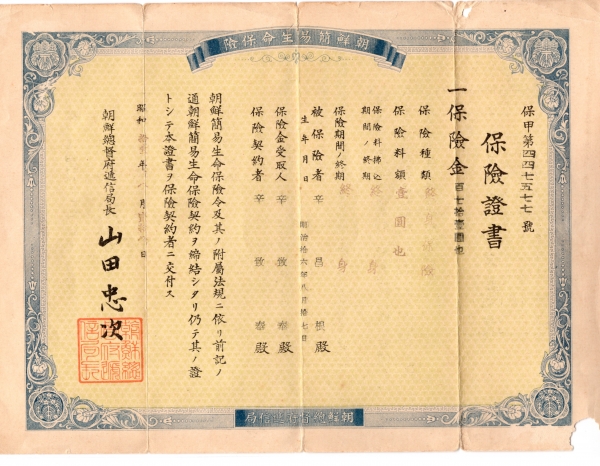 朝鮮簡易生命保險
保甲第四四七五七七號
保險證書
一保險金百七拾壹圓也
保險種類 終身保險
保險料額 壹圓也
保險料拂込期間ノ終期 終身
保險期間ノ終期 終身
被保險者 辛昌根殿
生年月日 明治拾六年八月拾七日
保險金受取人 辛致泰殿
保險契約者 辛致泰殿
朝鮮簡易生命保險令及其ノ附屬法規ニ依リ前記ノ
通朝鮮簡易生命保險契約ヲ締結シタリ仍テ其ノ證
トシテ本證書ヲ保險契約者ニ交付ス
昭和 年 月 日
朝鮮總督府遞信局長 山田忠次
朝鮮總督府遞信局